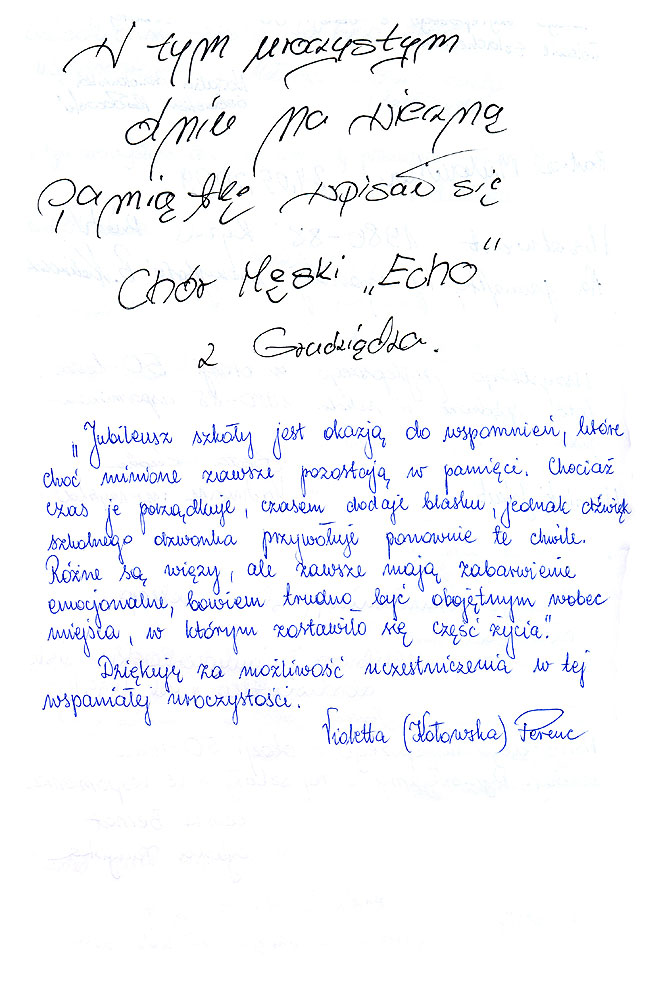 W tym uroczystym
dniu na wieczną
pamiątkę wpisał się
Chór Męski „Echo”
z Grudziądza.
„Jubileusz szkoły jest okazją do wspomnień, które
choć minione zawsze pozostają w pamięci. Chociaż
czas je porządkuje, czasem dodaje blasku, jednak dźwięk
szkolnego dzwonka przywołuje ponownie te chwile.
Różne są więzy, ale zawsze mają zabarwienie
emocjonalne, bowiem trudno być obojętnym wobec
miejsca, w którym zostawiło się część życia”.
Dziękuję za możliwość uczestniczenia w tej
wspaniałej uroczystości.
Violetta (Kotowska) Ferenc